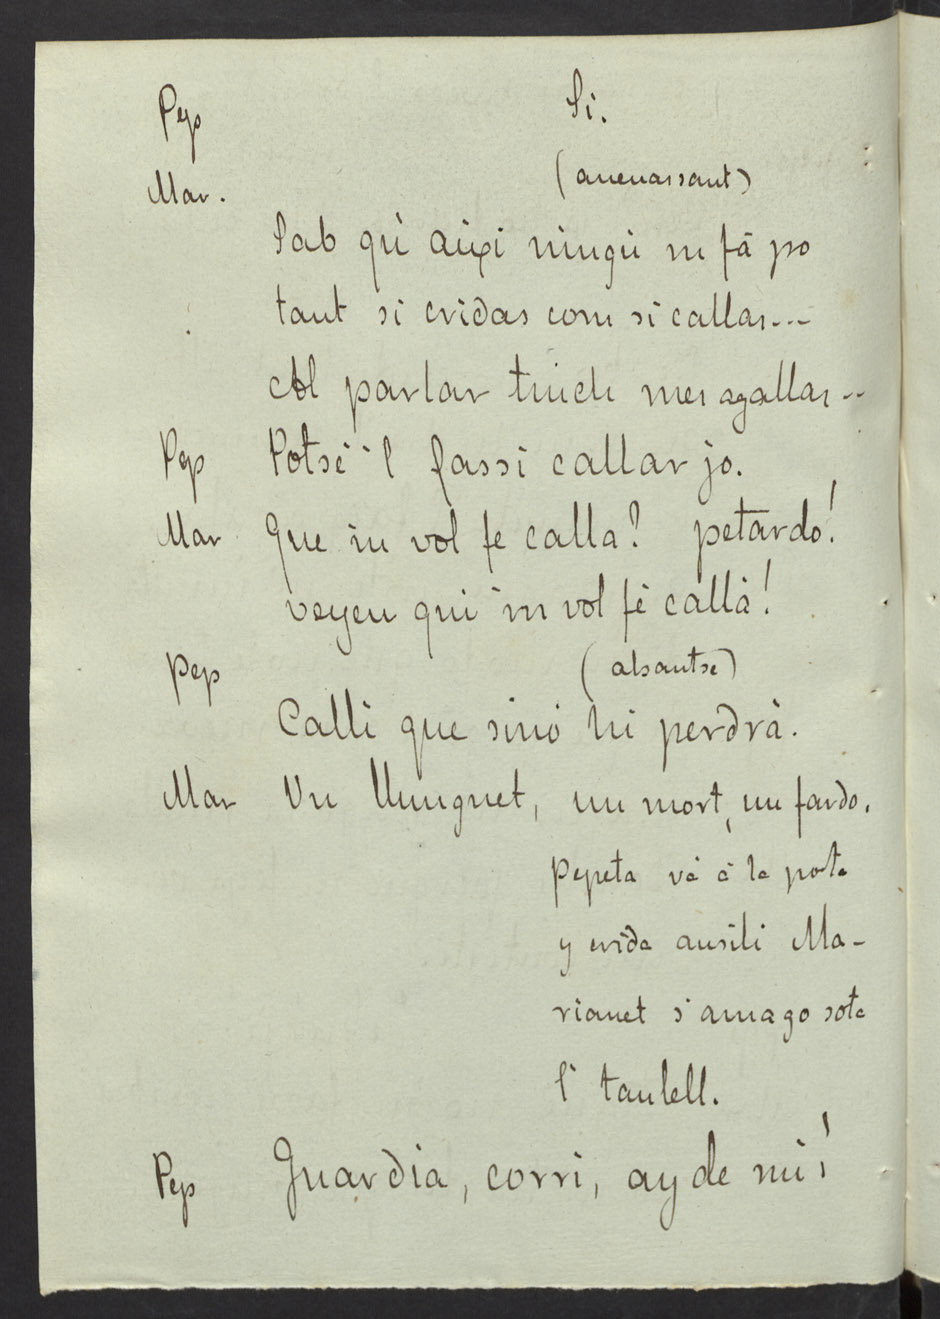 Pep Si.
Mar. (amenassant)
Sab qu' aixi ningù m fá po
tant si cridas com si callas...
Al parlar tinch mes agallas...
Pep Potsè 'l fassi callar jo.
Mar Que 'm vol fe calla? petardo!
veyeu qui 'm vol fè callà!
Pep (alsantse)
Calli que sinó hi perdrà.
Mar Un llunguet, un mort, un fardo.
Pepeta và à la porta
y crida ausili Ma-
rianet s' amaga sota
l' taulell.
Pep Guardia, corri, ay de mi!